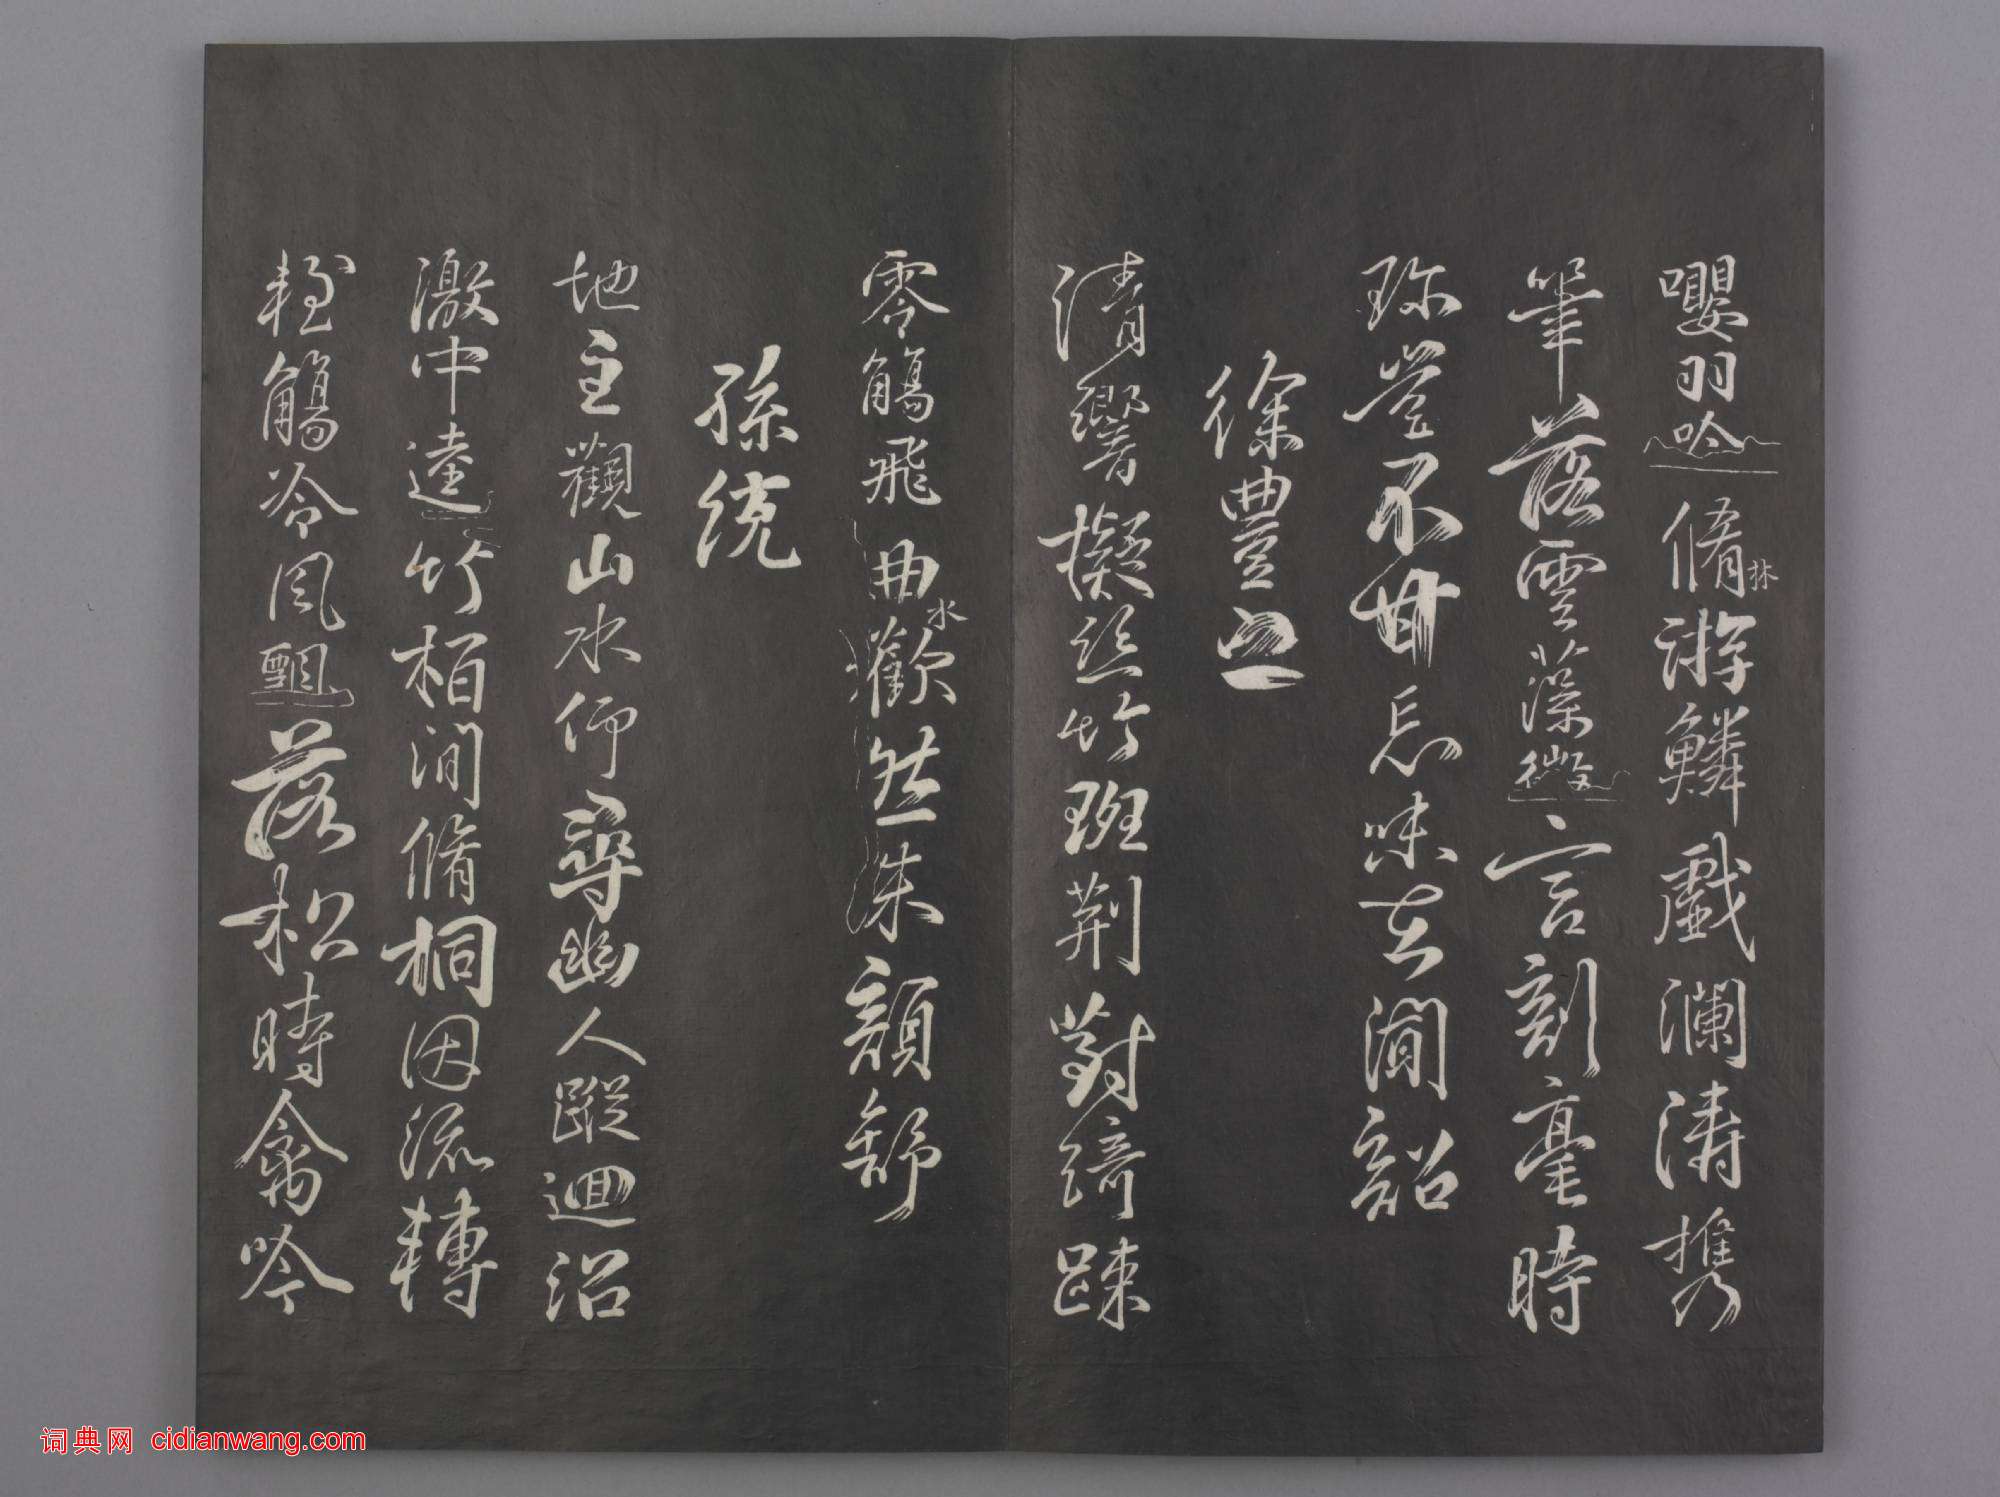 嚶羽吟脩林游鱗戲瀾濤携
筆落雲藻微言剖毫時
珍豈不甘忘味在聞韶
徐豊之
清響擬絲竹班荆對綺疎
零觴飛曲水歡然朱顏舒
孫統
地主觀山水仰尋幽人蹤迴沼
激中逵竹柏間脩桐因流轉
輕觴冷風飄落松時禽吟
词典网 cidianwang.com